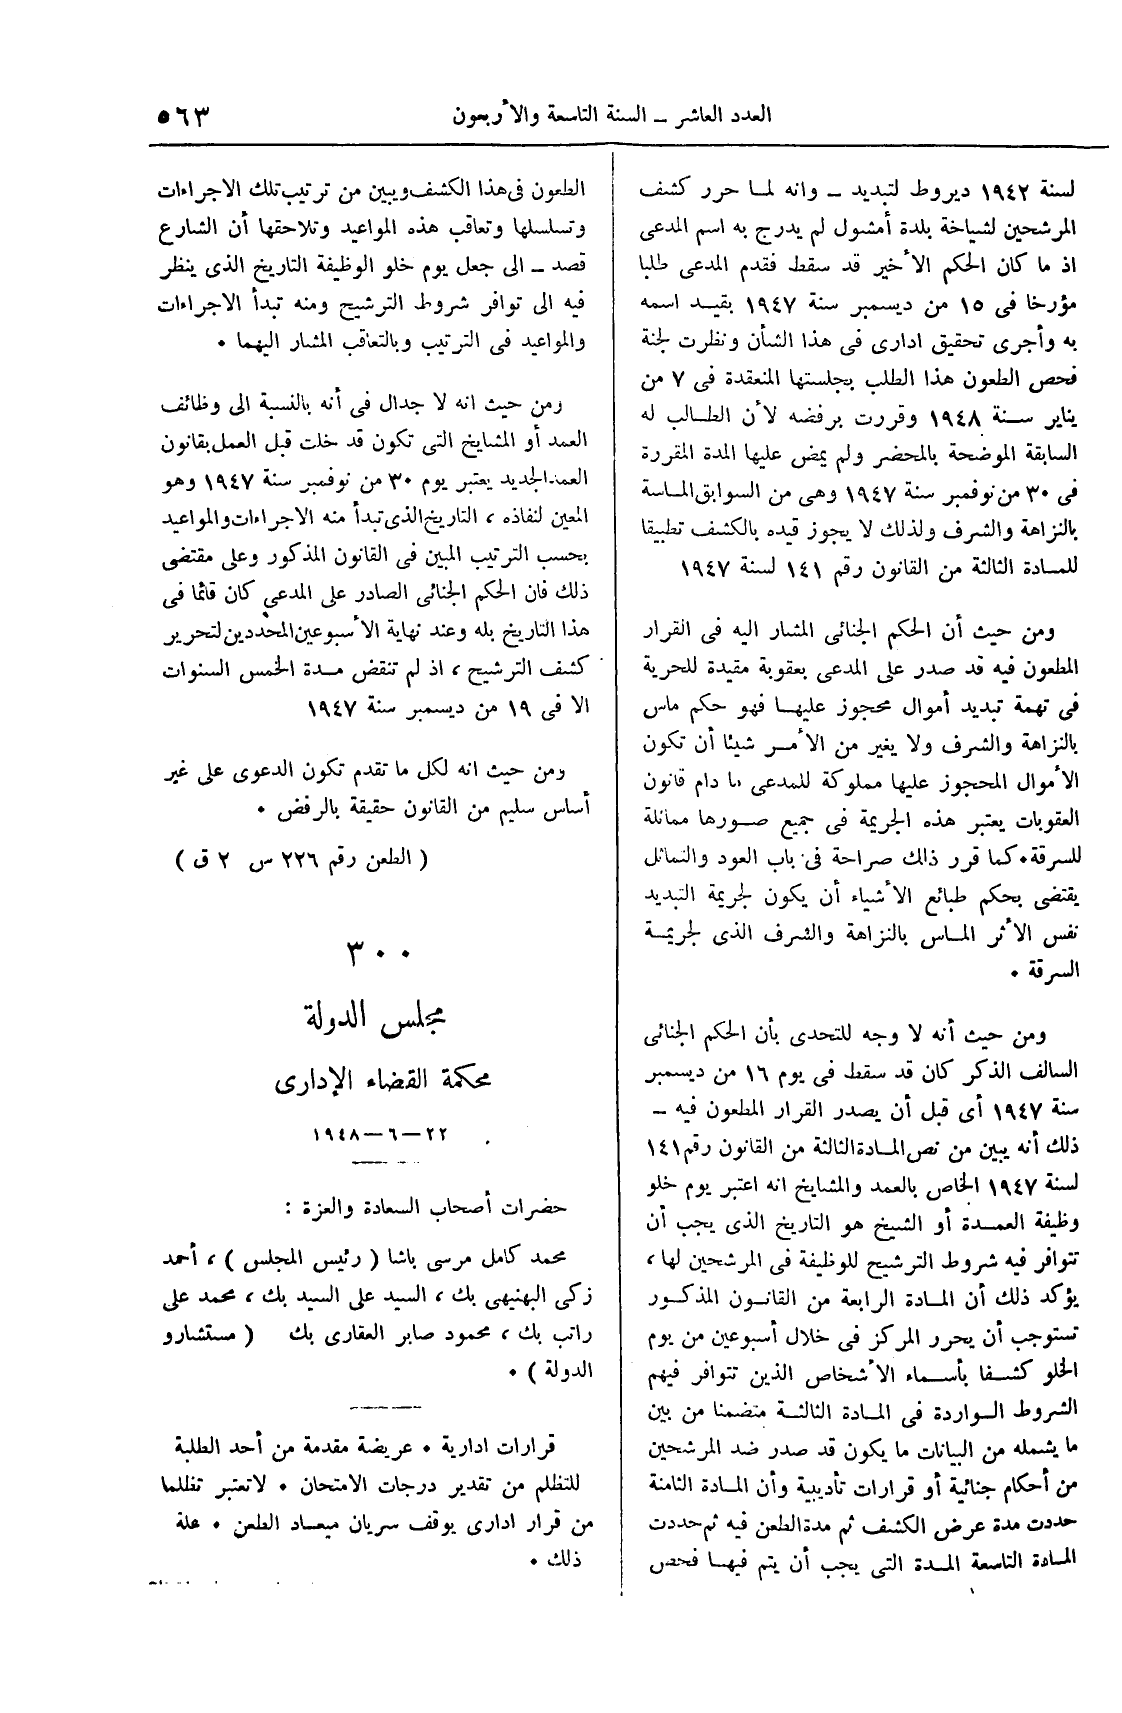 العدد العاشر ــ السنة التاسعة والأربعون
٥٦٣
لسنة ١٩٤٢ ديروط لتبديد ــ وانه لما حرر كشف
المرشحين لشياخة بلدة أمشول لم يدرج به اسم المدعى
اذ ما كان الحكم الأخير قد سقط فقدم المدعى طلبا
مؤرخا فى ١٥ من ديسمبر سنة ١٩٤٧ بقيد اسمه
به وأجرى تحقيق ادارى فى هذا الشأن ونظرت لجنة
فحص الطعون هذا الطلب بجلستها المنعقدة فى ٧ من
يناير سنة ١٩٤٨ وقررت برفضه لأن الطالب له
السابقة الموضحة بالمحضر ولم يمض عليها المدة المقررة
فى ٣٠ من نوفمبر سنة ١٩٤٧ وهى من السوابق الماسة
بالنزاهة والشرف ولذلك لا يجوز قيده بالكشف تطبيقا
للمادة الثالثة من القانون رقم ١٤١ لسنة ١٩٤٧
ومن حيث أن الحكم الجنائى المشار اليه فى القرار
المطعون فيه قد صدر على المدعى بعقوبة مقيدة للحرية
فى تهمة تبديد أموال محجوز عليها فهو حكم ماس
بالنزاهة والشرف ولا يغير من الأمر شيئا أن تكون
الأموال المحجوز عليها مملوكة للمدعى ما دام قانون
العقوبات يعتبر هذه الجريمة فى جميع صورها مماثلة
للسرقة٠ كما قرر ذلك صراحة فى باب العود والتماثل
يقتضى بحكم طبائع الأشياء أن يكون لجريمة التبديد
نفس الأثر الماس بالنزاهة والشرف الذى لجريمة
السرقة ٠
ومن حيث أنه لا وجه للتحدى بأن الحكم الجنائى
السالف الذكر كان قد سقط فى يوم ١٦ من ديسمبر
سنة ١٩٤٧ أى قبل أن يصدر القرار المطعون فيه ــ
ذلك أنه يبين من نص المادة الثالثة من القانون رقم ١٤١
لسنة ١٩٤٧ الخاص بالعمد والمشايخ انه اعتبر يوم خلو
وظيفة العمدة أو الشيخ هو التاريخ الذى يجب أن
تتوافر فيه شروط الترشيح للوظيفة فى المرشحين لها ،
يؤكد ذلك أن المادة الرابعة من القانون المذكور
تستوجب أن يحرر المركز فى خلال أسبوعين من يوم
الخلو كشفا بأسماء الأشخاص الذين تتوافر فيهم
الشروط الواردة فى المادة الثالثة متضمنا من بين
ما يشمله من البيانات ما يكون قد صدر ضد المرشحين
من أحكام جنائية أو قرارات تأديبية وأن المادة الثامنة
حددت مدة عرض الكشف ثم مدة الطعن فيه ثم حددت
المادة التاسعة المدة التى يجب أن يتم فيها فحص
الطعون فى هذا الكشف ويبين من ترتيب تلك الاجراءات
وتسلسلها وتعاقب هذه المواعيد وتلاحقها أن الشارع
قصد ــ الى جعل يوم خلو الوظيفة التاريخ الذى ينظر
فيه الى توافر شروط الترشيح ومنه تبدأ الاجراءات
والمواعيد فى الترتيب وبالتعاقب المشار اليهما ٠
ومن حيث انه لا جدال فى أنه بالنسبة الى وظائف
العمد أو المشايخ التى تكون قد خلت قبل العمل بقانون
العمد الجديد يعتبر يوم ٣٠ من نوفمبر سنة ١٩٤٧ وهو
المعين لنفاذه ، التاريخ الذى تبدأ منه الاجراءات والمواعيد
بحسب الترتيب المبين فى القانون المذكور وعلى مقتضى
ذلك فان الحكم الجنائى الصادر على المدعى كان قائما فى
هذا التاريخ بله وعند نهاية الأسبوعين المحددين لتحرير
كشف الترشيح ، اذ لم تنقض مدة الخمس السنوات
الا فى ١٩ من ديسمبر سنة ١٩٤٧
ومن حيث انه لكل ما تقدم تكون الدعوى على غير
أساس سليم من القانون حقيقة بالرفض ٠
( الطعن رقم ٢٢٦ س ٢ ق )
٣٠٠
مجلس الدولة
محكمة القضاء الإدارى
٢٢ــ٦ــ١٩٤٨
حضرات أصحاب السعادة والعزة :
محمد كامل مرسى باشا ( رئيس المجلس ) ، أحمد
زكى البهنيهى بك ، السيد على السيد بك ، محمد على
راتب بك ، محمود صابر العقارى بك ( مستشارو
الدولة ) ٠
قرارات ادارية ٠ عريضة مقدمة من أحد الطلبة
للتظلم من تقدير درجات الامتحان ٠ لا تعتبر تظلما
من قرار ادارى يوقف سريان ميعاد الطعن ٠ علة
ذلك ٠